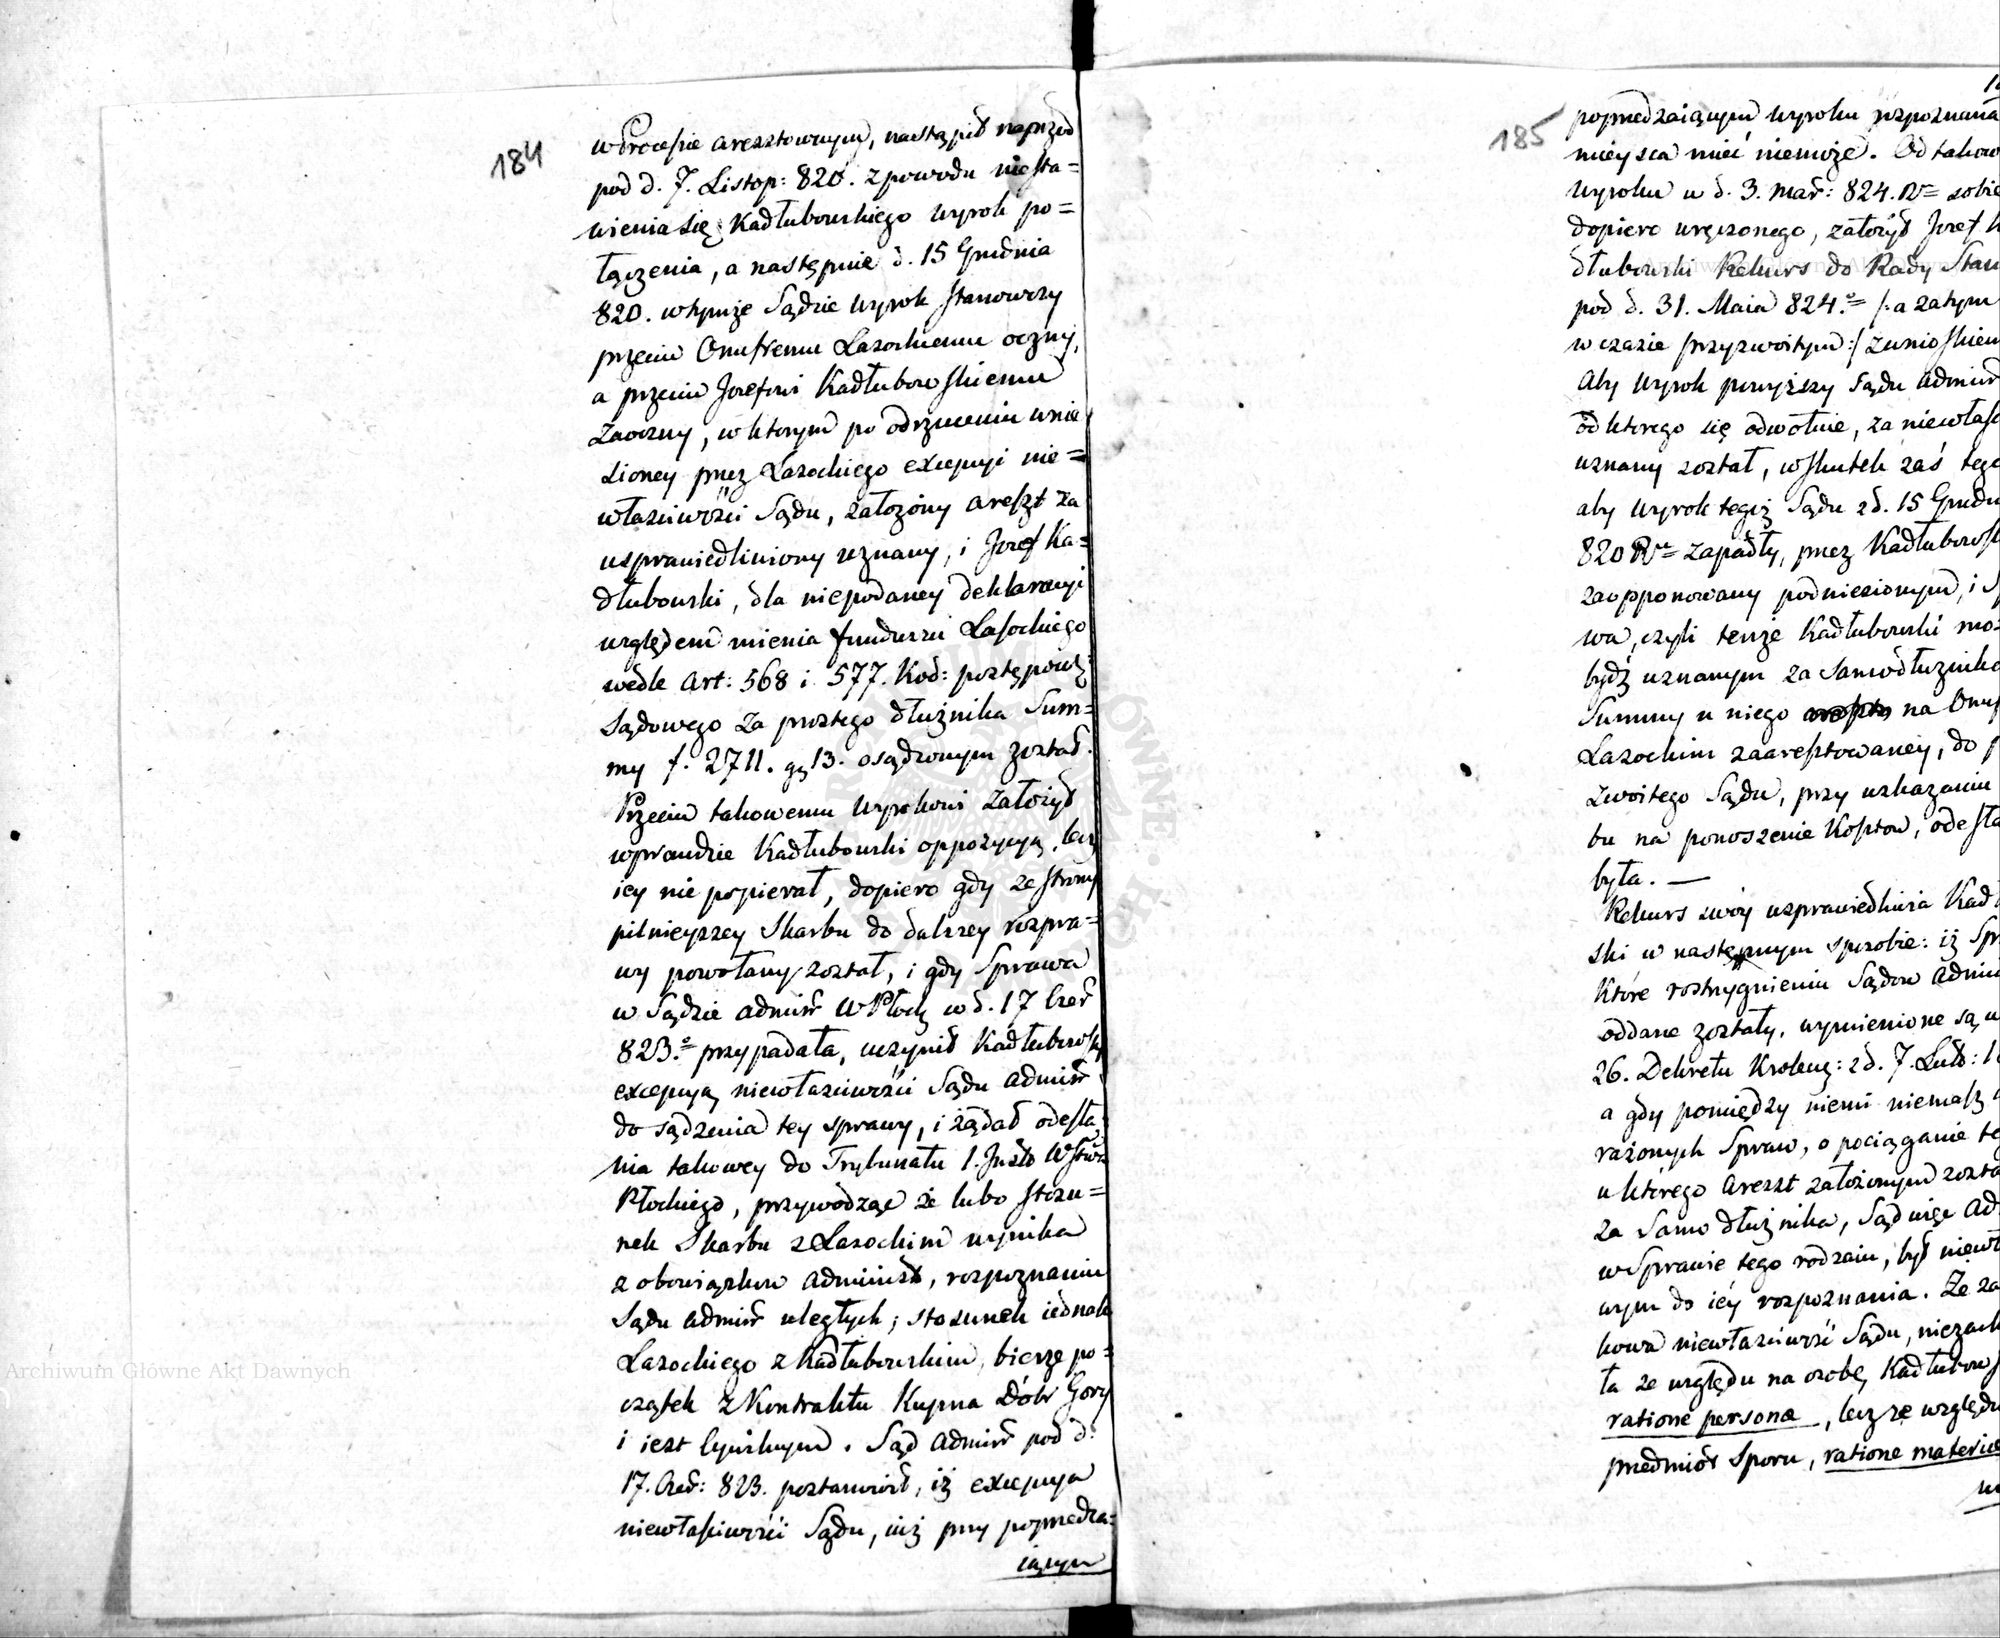 184
w Procesie aresztowym, nastąpił naprzód
pod d. 7. Listop: 820. z powodu niesta=
wienia się Kadłubowskiego wyrok po=
łączenia, a następnie d. 15 Grudnia
820. w tymże Sądzie wyrok stanowczy
przeciw Onufremu Lasockiemu oczny,
a przeciw Jozefowi Kadłubowskiemu
zaoczny, w ktorym po odrzuceniu wnie
sioney przez Lasockiego excepcyi nie=
właściwości Sądu, założony areszt za
usprawiedliwiony uznany, i Jozef Ka=
dłubowski, dla niepodaney deklaracyi
względem mienia funduszu Lasockiego
wedle Art: 568 i 577. Kod: postępow:
Sądowego za prostego dłużnika Sum=
my f. 2711. gr 13. osądzonym został.
Przeciw takowemu wyrokowi założył
wprawdzie Kadłubowski oppozycyą, lecz
iey nie popierał, dopiero gdy ze strony
pilnieyszey Skarbu do dalszey rozpra=
wy powołany został, i gdy Sprawa
w Sądzie admin W Płock w d. 17 Czer
823.º przypadała, uczynił Kadłubowski
excepcyą niewłaściwości Sądu admin
do sądzenia tey sprawy, i żądał odesła
nia takowey do Trybunału 1. Inst. Wstwa
Płockiego, przywodząc że lubo stosu=
nek Skarbu z Lasockim wynika
z obowiązkow administ, rozpoznaniu
Sądu admin uległych; stosunek iednak
Lasockiego z Kadłubowskim, bierze po=
czątek z Kontraktu Kupna Dóbr Gory
i iest cywilnym. Sąd admin pod d.
17. Czer: 823. postanowił, iż excepcya
niewłaściwości Sądu, iuż przy poprzedza=
iącym
185
poprzedzaiącym wyroku rozpoznana
mieysca mieć niemoże. Od takow
wyroku w d. 3. Mar: 824. Rº sobie
dopiero wręczonego, założył Jozef K
dłubowski Rekurs do Rady Stan
pod d. 31. Maia 824.º /: a zatym
w czasie przyzwoitym :/ z wnioskiem
Aby wyrok powyższy Sądu admin
od ktorego się odwołuie, za niewłaś
uznany został, wskutek zaś tego
aby wyrok tegoż Sądu z d. 15 Grudn
820 Rº zapadły, przez Kadłubowsk
zaopponowany podniesionym, i S
wa, czyli tenże Kadłubowski mo=
bydź uznanym za samodłużnika
Summy u niego na Onuf
Lasockim zaaresztowaney, do p
zwoitego Sądu, przy wskazaniu
bu na ponoszenie Kosztow, odesła
była. —
Rekurs swoy usprawiedliwia Kad
ski w następnym sposobie: iż Spr
Które rostrzygnieniu Sądow admin
oddane zostały, wymienione są w
26. Dekretu Krolews: z d. 7. Lut: 1
a gdy pomiędzy niemi niemasz
rażonych Spraw, o pociąganie te
u ktorego areszt założonym zosta
za Samo dłużnika, Sąd więc Ad
w Sprawie tego rodzaiu, był niewł
wym do iey rozpoznania. Że za
kowa niewłaściwość Sądu, niezach
ła ze względu na osobę Kadłubows
ratione persona, lecz ze względu
przedmiot Sporu, ratione materiae